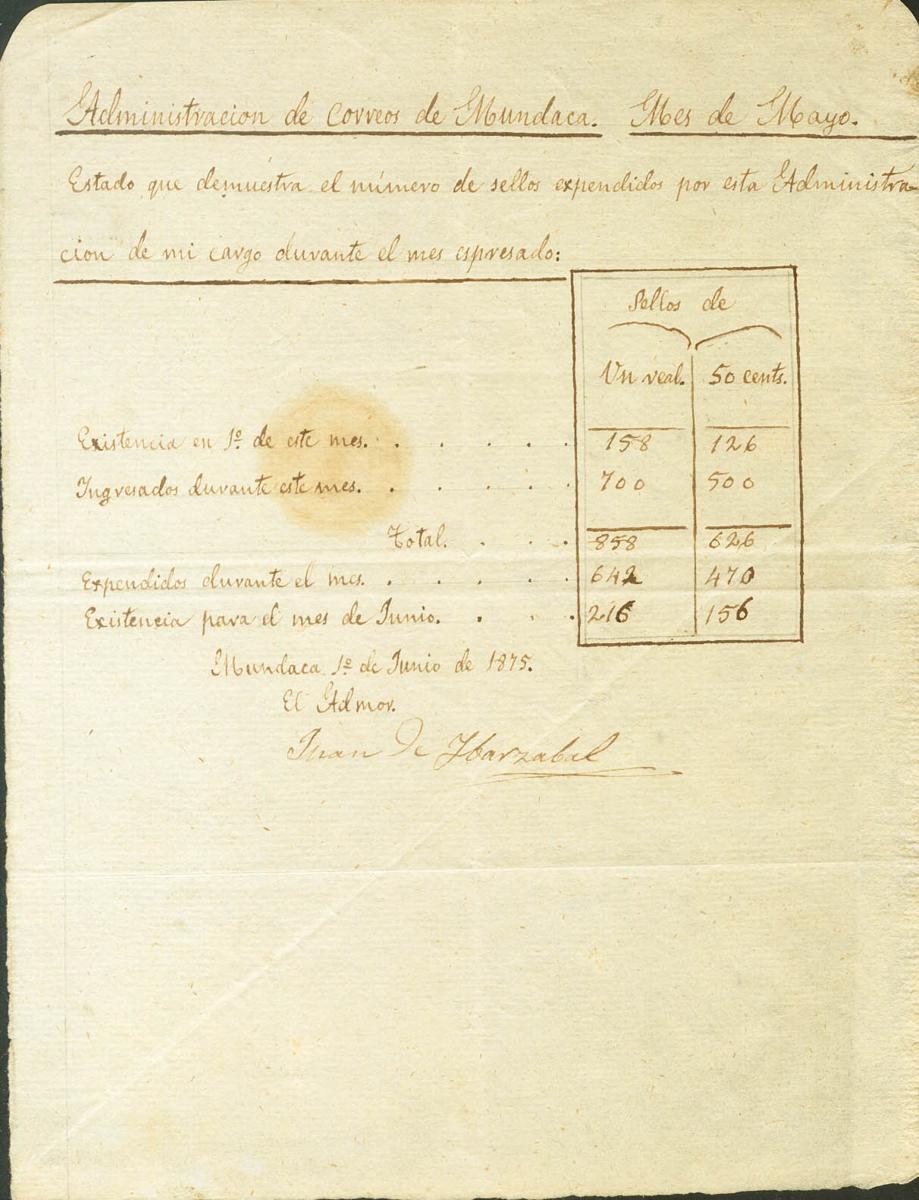 Administracion de Correos de Mundaca. Mes de Mayo.
Estado que demuestra el número de sellos expendidos por esta Administra-
cion de mi cargo durante el mes espresado:
Sellos de
Un real. 50 cents.
Existencia en 1º de este mes. . . . . . 158 126
Ingresados durante este mes. . . . . . 700 500
Total. . . . 858 626
Expendidos durante el mes. . . . . . 642 470
Existencia para el mes de Junio. . . . 216 156
Mundaca 1º de Junio de 1875.
El Admor.
Juan de Ybarzabal